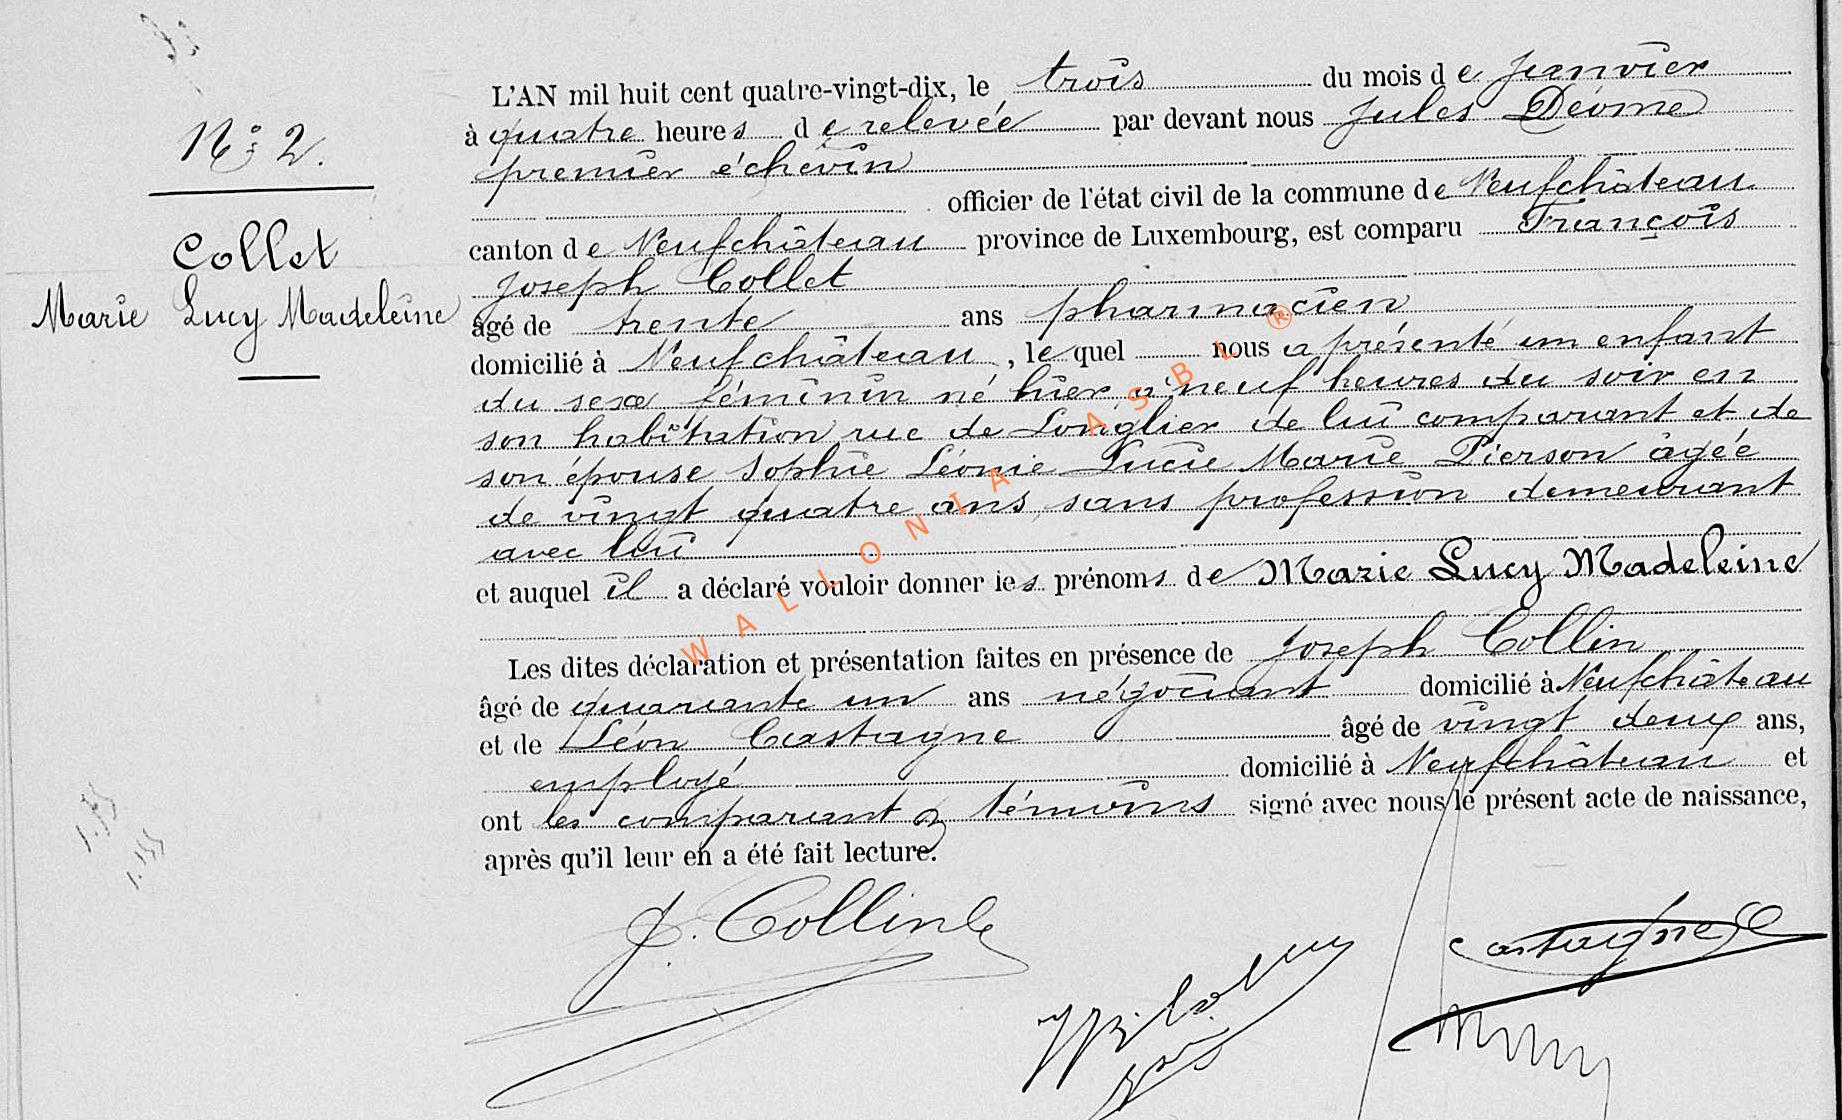 N° 2.
Collet
Marie Lucy Madeleine
L'AN mil huit cent quatre-vingt-dix, le trois du mois de janvier
à quatre heures de relevée par devant nous Jules Déome
premier échevin
officier de l'état civil de la commune de Neufchâteau
canton de Neufchâteau province de Luxembourg, est comparu François
Joseph Collet
âgé de trente ans pharmacien
domicilié à Neufchâteau, lequel nous a présenté un enfant
du sexe féminin né hier à neuf heures du soir en
son habitation rue de Longlier de lui comparant et de
son épouse Sophie Léonie Lucie Marie Pierson âgée
de vingt quatre ans, sans profession demeurant
avec lui
et auquel il a déclaré vouloir donner les prénoms de Marie Lucy Madeleine
Les dites déclaration et présentation faites en présence de Joseph Collin
âgé de quarante un ans négociant domicilié à Neufchâteau
et de Léon Castagne âgé de vingt deux ans,
employé domicilié à Neufchâteau et
ont les comparant & témoins signé avec nous le présent acte de naissance,
après qu'il leur en a été fait lecture.
J. Collin
Castagne
WALLONIA ASBL ®